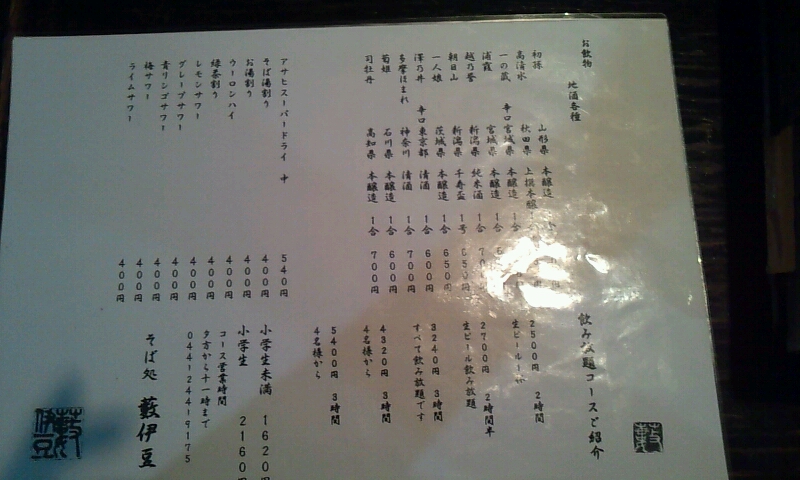 お飲物
地酒各種
初孫 山形県 本醸造
高清水 秋田県 上撰本醸
一の蔵 辛口 宮城県 本醸造 1合
浦霞 宮城県 本醸造 1合
越乃誉 新潟県 純米酒 1合
朝日山 新潟県 千寿盃 1号 650円
一人娘 茨城県 本醸造 1合 650円
澤乃井 辛口 東京都 清酒 1合 600円
多摩ほまれ 神奈川 清酒 1合 700円
菊姫 石川県 本醸造 1合 600円
司牡丹 高知県 本醸造 1合 700円
アサヒスーパードライ 中 540円
そば湯割り 400円
お湯割り 400円
ウーロンハイ 400円
緑茶割り 400円
レモンサワー 400円
グレープサワー 400円
青リンゴサワー 400円
梅サワー 400円
ライムサワー 400円
飲み放題コースご紹介
2500円 2時間
生ビール1杯
2700円 2時間半
生ビール飲み放題
3240円 3時間
すべて飲み放題です
4320円 3時間
4名様から
5400円 3時間
4名様から
小学生未満 1620円
小学生 2160
コース営業時間
夕方から十一時まで
044-244-9175
そば処 藪伊豆